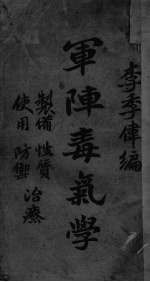 李季偉編
軍陣毒氣學
製備 性質 治療
使用 防禦